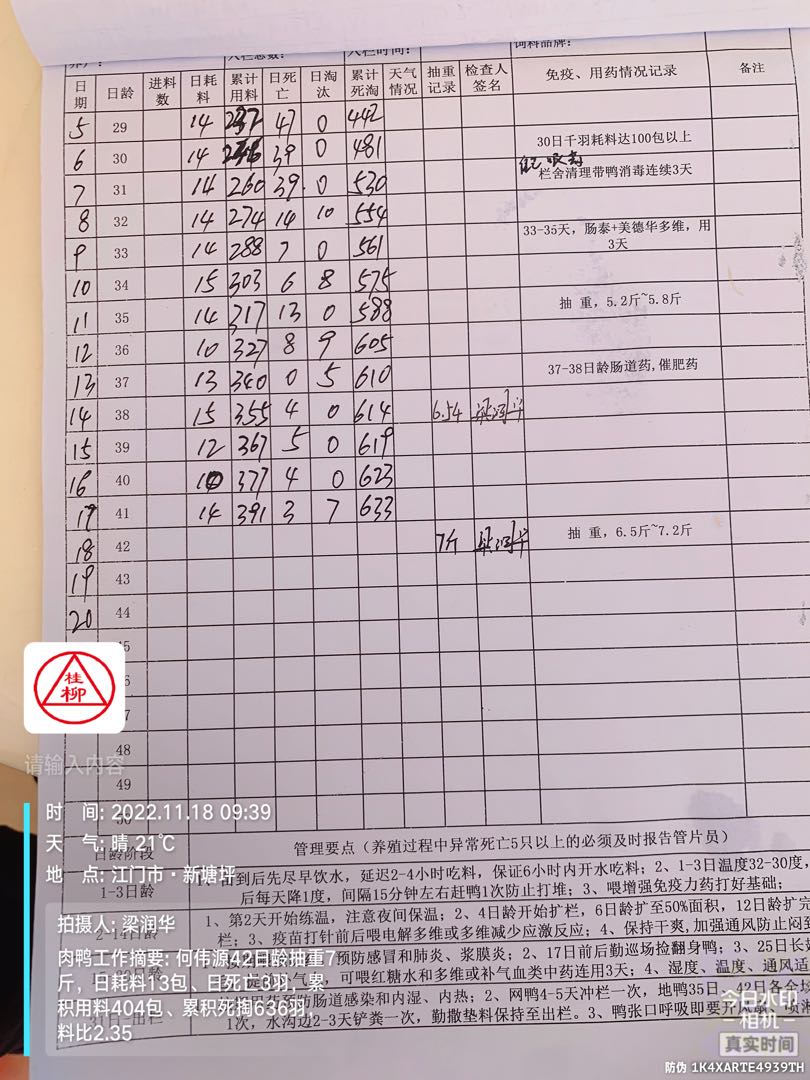 入栏总数: 入栏时间: 饲料品牌:
日期 日龄 进料数 日耗料 累计用料 日死亡 日淘汰 累计死淘 天气情况 抽重记录 检查人签名 免疫、用药情况记录 备注
5 29 14 232 47 0 442
30日千羽耗料达100包以上
6 30 14 246 39 0 481
7 31 14 260 39 0 530 栏舍清理带鸭消毒连续3天
8 32 14 274 14 10 554
33-35天，肠泰+美德华多维，用3天
9 33 14 288 7 0 561
10 34 15 303 6 8 575
11 35 14 317 13 0 588 抽 重，5.2斤~5.8斤
12 36 10 327 8 9 605
13 37 13 340 0 5 610 37-38日龄肠道药,催肥药
14 38 15 355 4 0 614 6.54 梁润华
15 39 12 367 5 0 619
16 40 10 377 4 0 623
17 41 14 391 3 7 633
18 42 7斤 梁润华 抽 重，6.5斤~7.2斤
19 43
20 44
48
49
桂柳
请输入内容
时 间: 2022.11.18 09:39
天 气: 晴 21℃
地 点: 江门市·新塘坪
拍摄人: 梁润华
肉鸭工作摘要: 何伟源42日龄抽重7
斤，日耗料13包、日死亡3羽，累
积用料404包、累积死掏636羽，
料比2.35
日龄阶段 管理要点（养殖过程中异常死亡5只以上的必须及时报告管片员）
1-3日龄 到后先尽早饮水，延迟2-4小时吃料，保证6小时内开水吃料；2、1-3日温度32-30度，
后每天降1度，间隔15分钟左右赶鸭1次防止打堆；3、喂增强免疫力药打好基础；
1、第2天开始练温，注意夜间保温；2、4日龄开始扩栏，6日龄扩至50%面积，12日龄扩完
栏；3、疫苗打针前后喂电解多维或多维减少应激反应；4、保持干爽，加强通风防止闷到
预防感冒和肺炎、浆膜炎；2、17日前后勤巡场捡翻身鸭；3、25日长
可喂红糖水和多维或补气血类中药连用3天；4、湿度、温度、通风适
预防肠道感染和内湿、内热；2、网鸭4-5天冲栏一次，地鸭35日、42日各全场
1次，水沟边2-3天铲粪一次，勤撒垫料保持至出栏。3、鸭张口呼吸即要开风扇、喷淋
今日水印
相机
真实时间
防伪 1K4XARTE4939TH